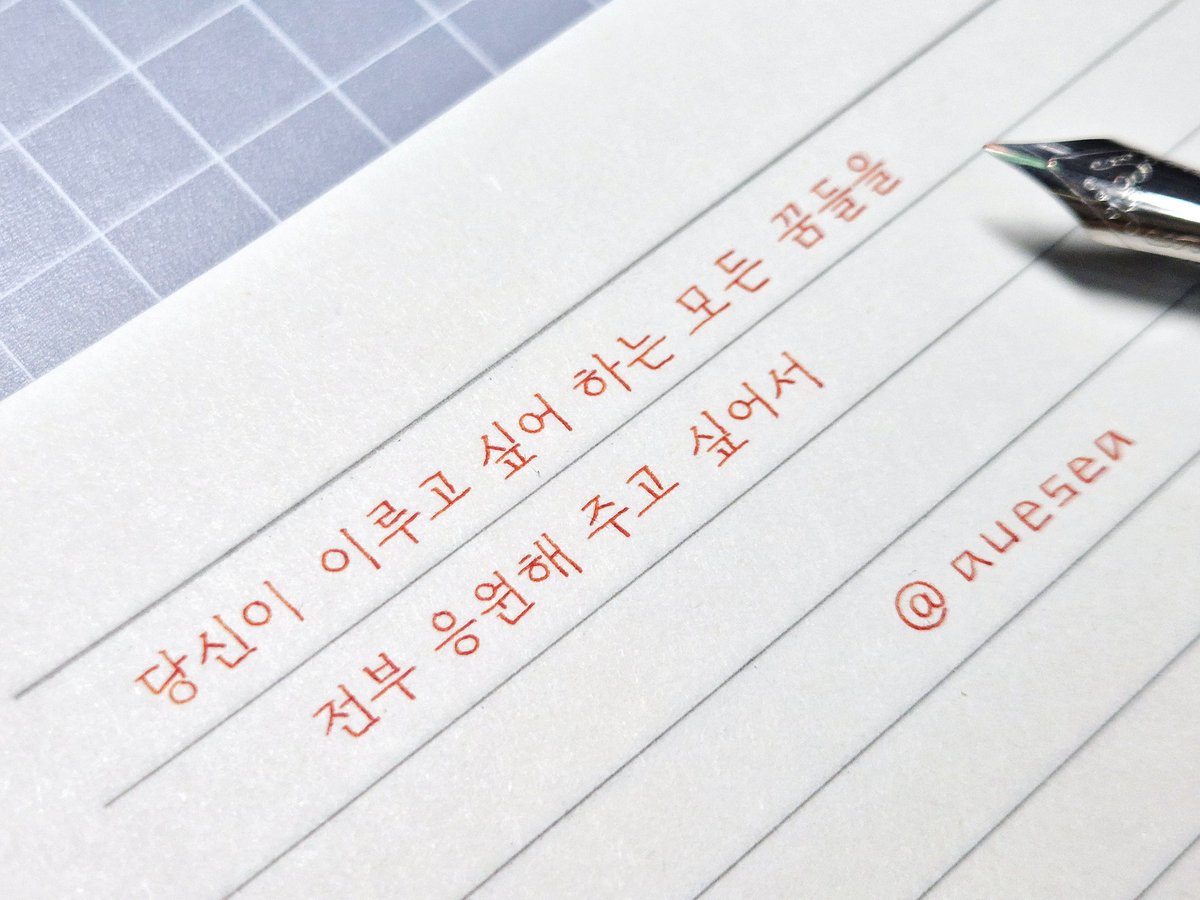 당신이 이루고 싶어 하는 모든 꿈들을
전부 응원해 주고 싶어서
@auesea